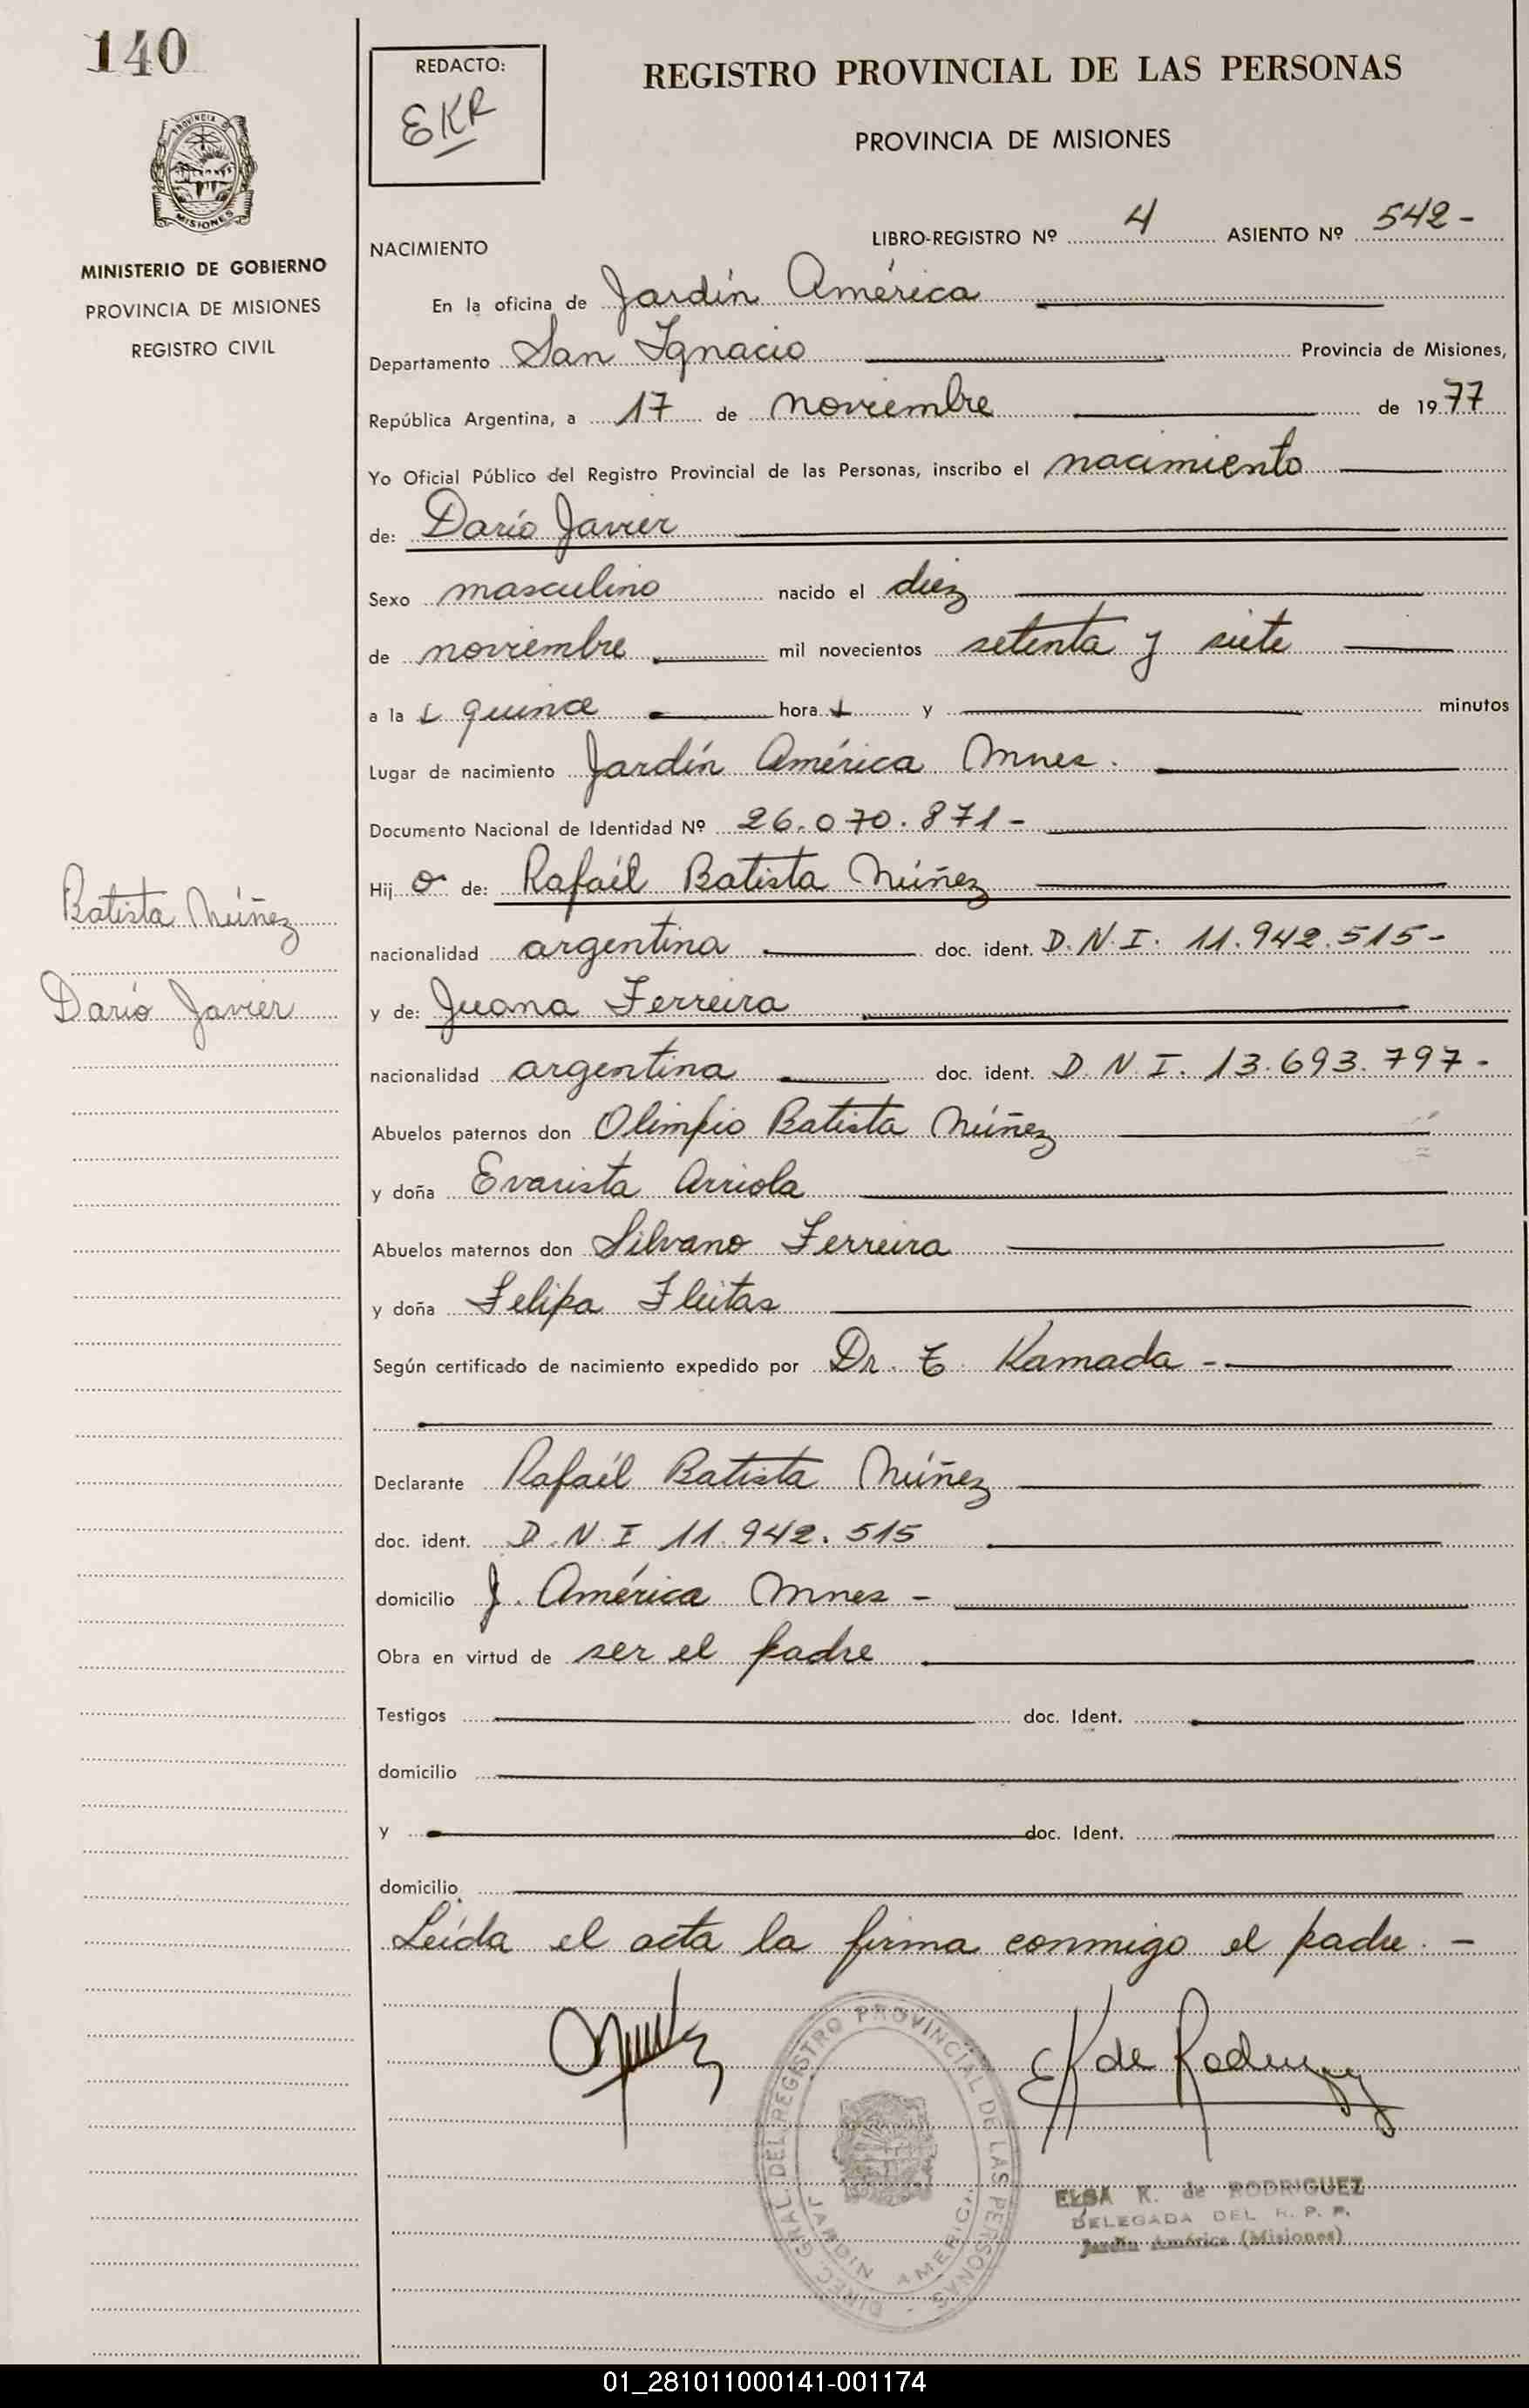 140
REDACTO:
EKR
REGISTRO PROVINCIAL DE LAS PERSONAS
PROVINCIA DE MISIONES
PROVINCIA D
MISIONES
MINISTERIO DE GOBIERNO
PROVINCIA DE MISIONES
REGISTRO CIVIL
NACIMIENTO LIBRO-REGISTRO Nº 4 ASIENTO Nº 542-
En la oficina de Jardín América
Departamento San Ignacio Provincia de Misiones,
República Argentina, a 17 de noviembre de 1977
Yo Oficial Público del Registro Provincial de las Personas, inscribo el nacimiento
de: Darío Javier
Sexo masculino nacido el diez
de noviembre mil novecientos setenta y siete
a las quince horas y minutos
Lugar de nacimiento Jardín América Mnes.
Documento Nacional de Identidad Nº 26.070.871-
Hijo de: Rafaél Batista Núñez
Batista Núñez
nacionalidad argentina doc. ident. D.N.I. 11.942.515-
Darío Javier
y de: Juana Ferreira
nacionalidad argentina doc. ident. D.N.I. 13.693.797-
Abuelos paternos don Olimpio Batista Núñez
y doña Evarista Arriola
Abuelos maternos don Silvano Ferreira
y doña Felipa Fleitas
Según certificado de nacimiento expedido por Dr. T. Kamada -
Declarante Rafaél Batista Núñez
doc. ident. D.N.I 11.942.515
domicilio J. América Mnes -
Obra en virtud de ser el padre
Testigos doc. Ident.
domicilio
y doc. Ident.
domicilio
Leída el acta la firma conmigo el padre. -
EK de Rodriguez
DIREC. GRAL. DEL REGISTRO PROVINCIAL DE LAS PERSONAS -
JARDIN AMERICA
ELSA K. de RODRIGUEZ
DELEGADA DEL R. P. P.
Jardín América (Misiones)
01_281011000141-001174